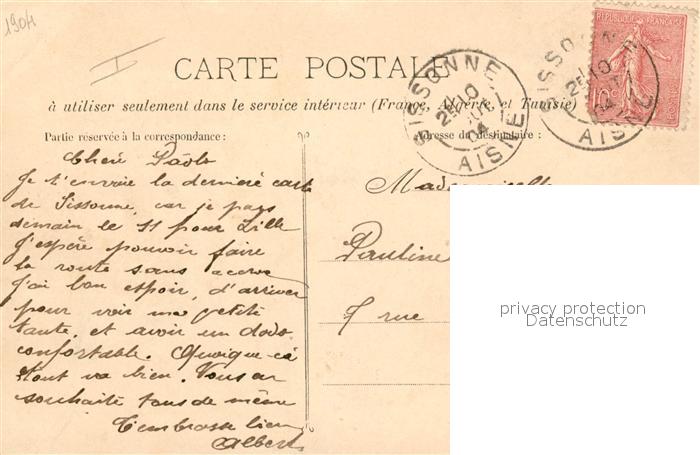 1904
CARTE POSTALE
à utiliser seulement dans le service intérieur (France, Algérie, et Tunisie)
Partie réservée à la correspondance :
Adresse du destinataire :
RÉPUBLIQUE FRANÇAISE
SISSONNE
AISNE
SISSONNE
AISNE
04
Cheri Paolo
Je t'envoie la dernière carte
de Sissonne, car je pars
demain le 11 pour Lille
J'espère pouvoir faire
la route sans accroc
J'ai bon espoir, d'arriver
pour voir ma petite
tante, et avoir un dodo
confortable. Quoique çà
tout va bien. Vous en
souhaite tous de même
T'embrasse bien
Albert
Mademoiselle
Pauline
7 rue
privacy protection
Datenschutz